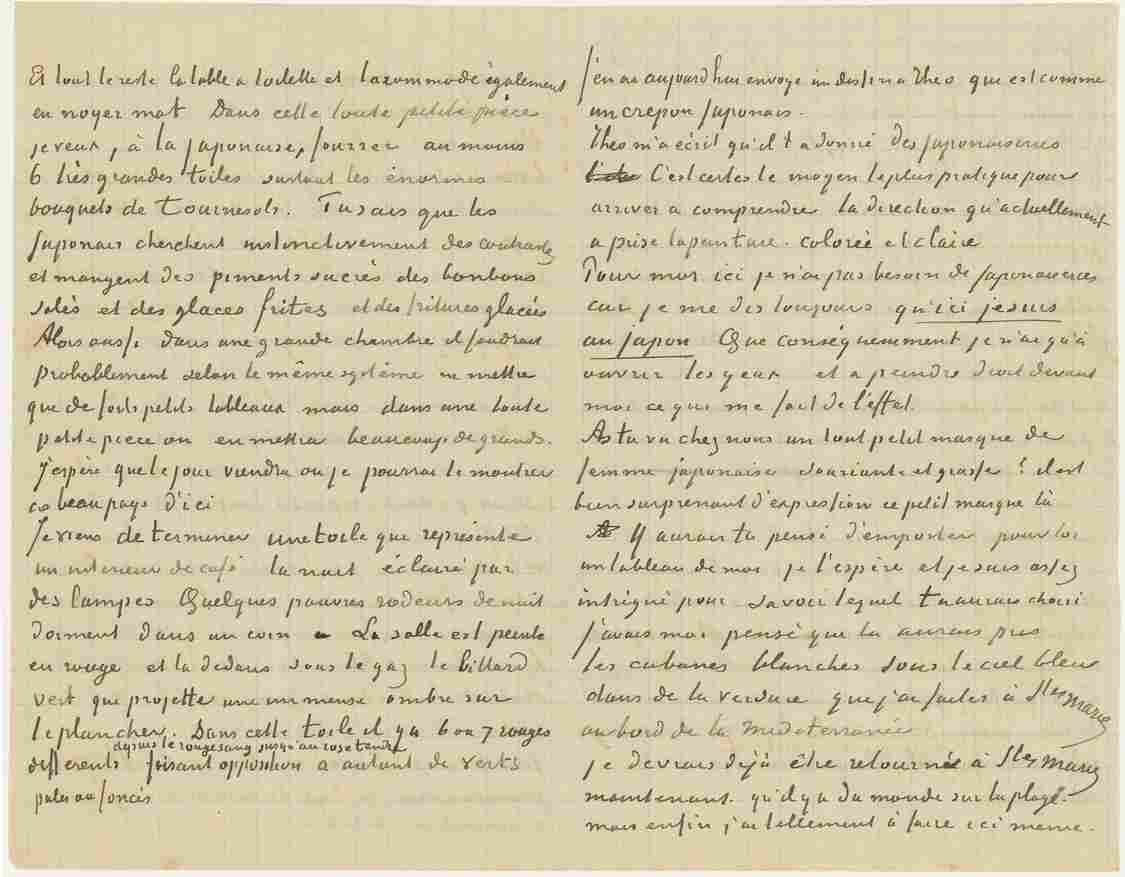 Et tout le reste la table a toilette et la commode également
en noyer mat Dans cette toute petite pièce
je veux, à la japonaise, fourrer au moins
6 très grandes toiles surtout les énormes
bouquets de tournesols. Tu sais que les
Japonais cherchent instinctivement des contrastes
et mangent des piments sucrés des bonbons
salés et des glaces frites et des fritures glacées
Alors aussi dans une grande chambre il faudrait
probablement selon le même système ne mettre
que de forts petits tableaux mais dans une toute
petite pièce on en mettra beaucoup de grands.
J'espère que le jour viendra ou je pourrai te montrer
ce beau pays d'ici
Je viens de terminer une toile que représente
un interieur de café la nuit éclairé par
des lampes Quelques pauvres rodeurs de nuit
dorment dans un coin La salle est peinte
en rouge et la dedans sous le gaz le billard
vert que projette une immense ombre sur
le plancher. Dans cette toile il y a 6 ou 7 rouges
depuis le rouge sang jusqu'au rose tendre
differents faisant opposition a autant de verts
pales ou foncés
j'en ai aujourd'hui envoyé un dessin a Theo que est comme
un crepon japonais.
Theo m'a écrit qu'il t'a donné des japonaiseries
C'est certes le moyen le plus pratique pour
arriver a comprendre la direction qu'actuellement
a prise la peinture. colorée et claire
Pour moi ici je n'ai pas besoin de japonaiseries
car je me dis toujours qu'ici je suis
au japon Que conséquemment je n'ai qu'à
ouvrir les yeux et a peindre droit devant
moi ce que me fait de l'effet.
As tu vu chez nous un tout petit masque de
femme japonaise souriante et grasse? il est
bien surprenant d'expression ce petit masque là
Y aurais tu pensé d'emporter pour toi
un tableau de moi je l'espère et je suis assez
intrigué pour savoir lequel tu aurais choisi
j'avais moi pensé que tu aurais pris
les cabanes blanches sous le ciel bleu
dans de la verdure que j'ai faites à Stes Maries
au bord de la Mediterranée
je devrais déjà être retourné à Stes Maries
maintenant. qu'il y a du monde sur la plage.
mais enfin j'ai tellement à faire ici meme.